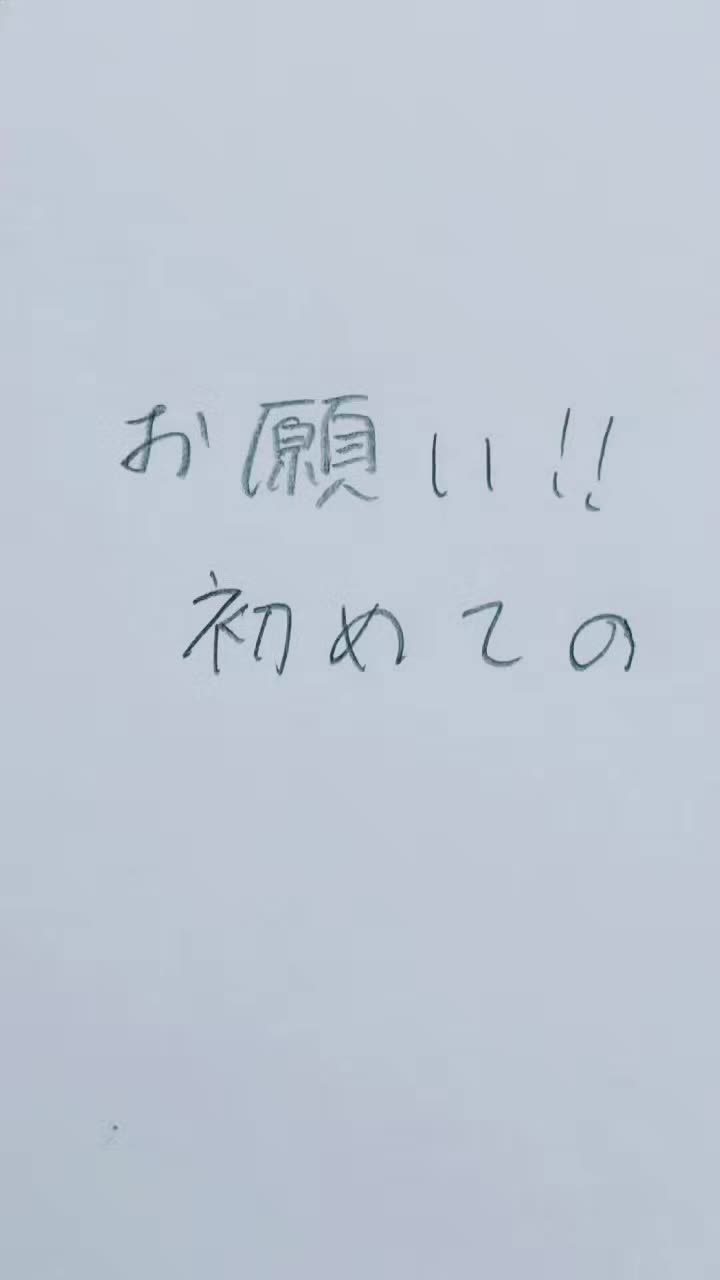 お願い!!
初めての